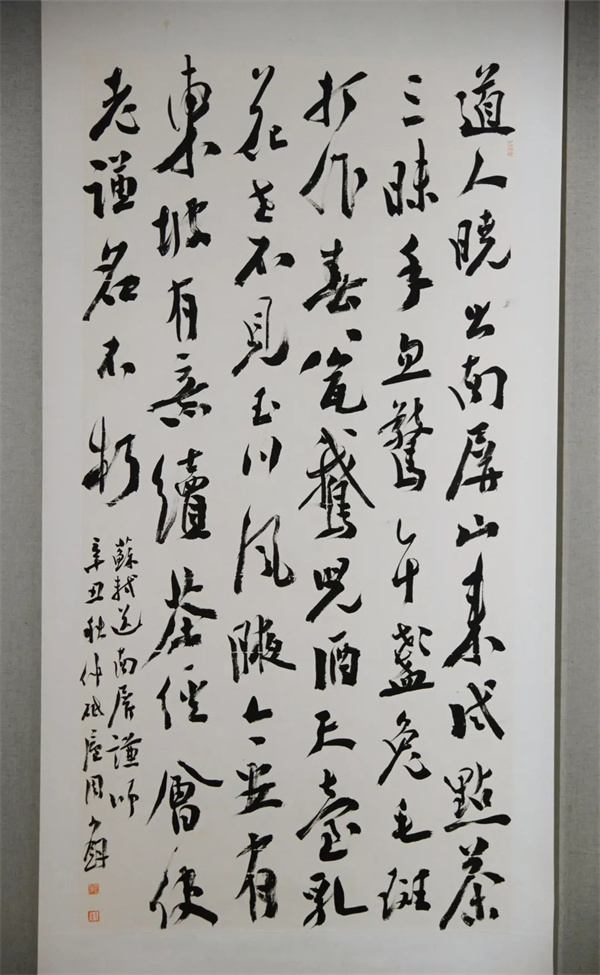 道人曉出南屏山來試點茶
三昧手忽驚午盞兔毛斑
打作春瓮鵝兒酒天臺乳
花世不見玉川風腋今安有
東坡有意續茶經會使
老謙名不朽
蘇軾送南屏謙師
辛丑秋仲砥廬周